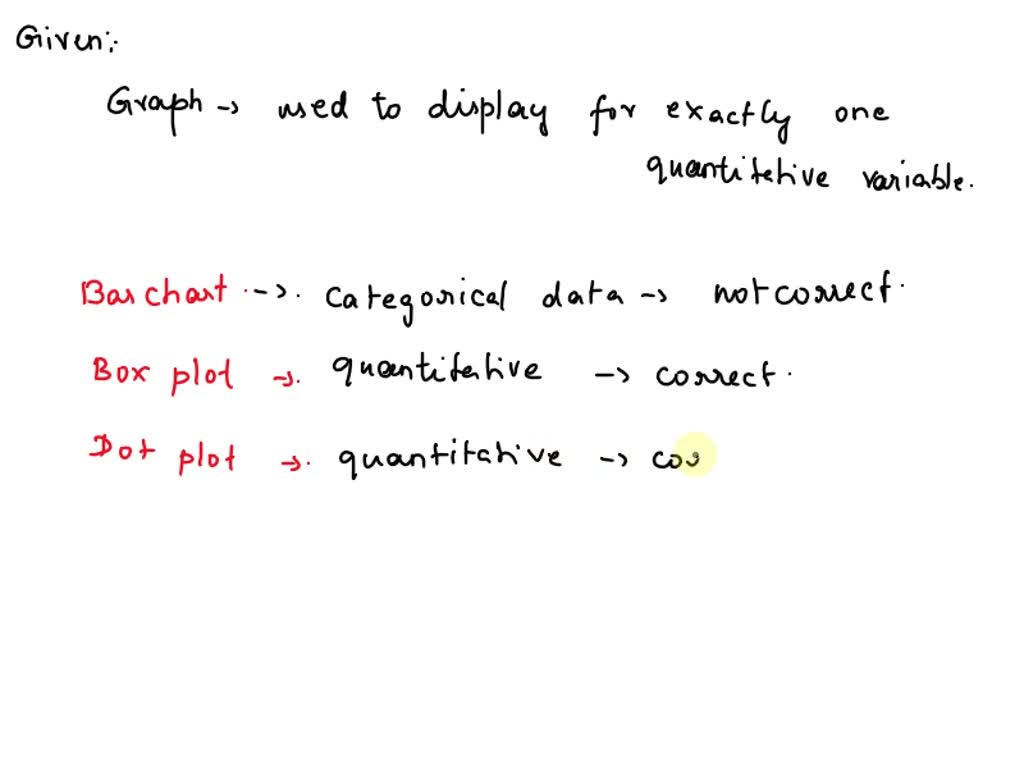 Given:
Graph → used to display for exactly one
quantitative variable.
Bar chart → categorical data → not correct.
Box plot → quantitative → correct.
Dot plot → quantitative → cor